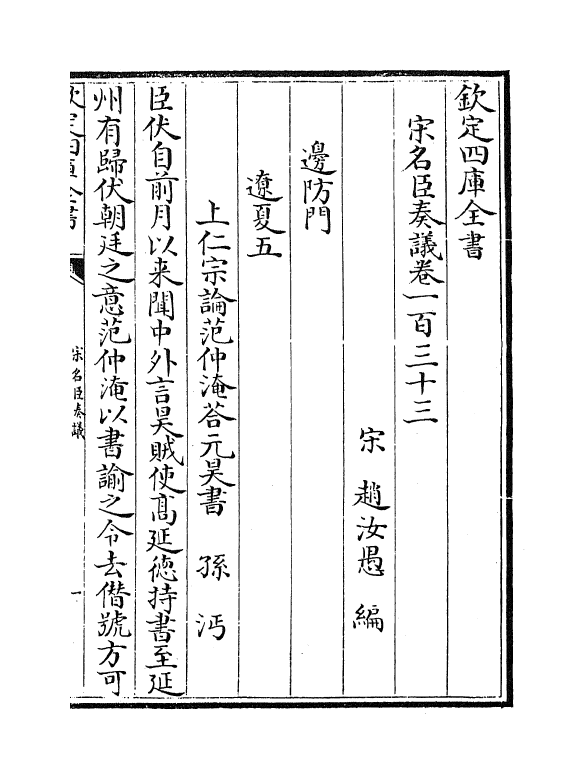 欽定四庫全書
宋名臣奏議卷一百三十三
宋 趙汝愚 編
邊防門
遼夏五
上仁宗論范仲淹荅元昊書 孫沔
臣伏自前月以来聞中外言昊賊使髙延徳持書至延
州有歸伏朝廷之意范仲淹以書諭之令去僭號方可
欽定四庫全書
宋名臣奏議
一